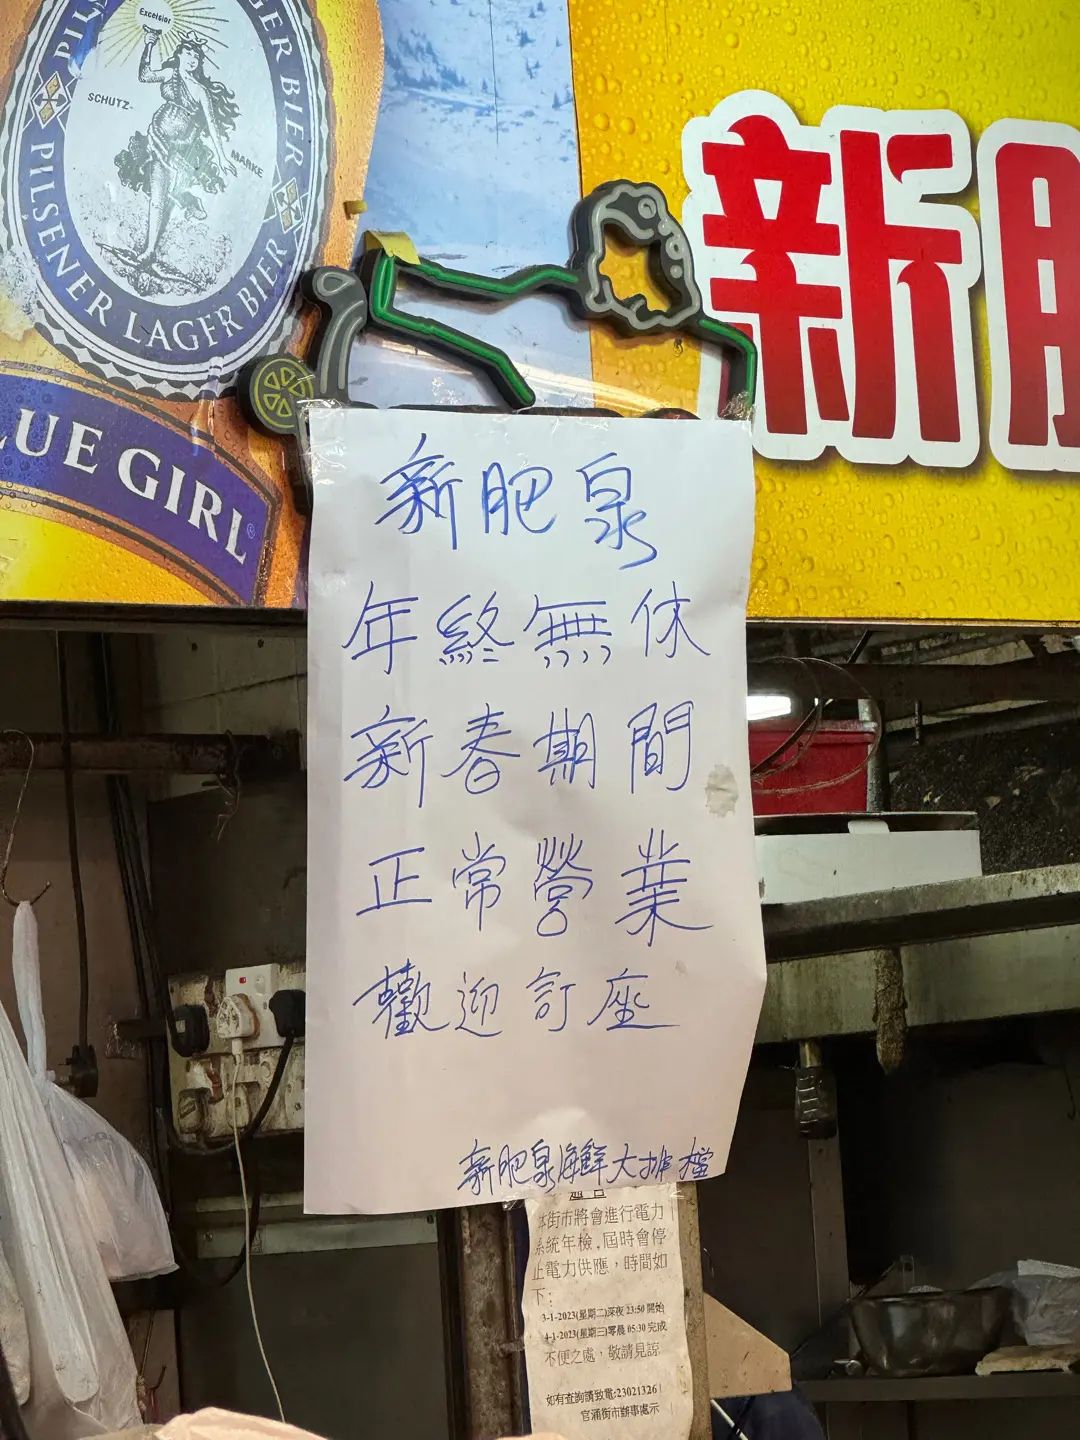 Excelsior
SCHUTZ-
MARKE
PILSENER LAGER BIER
BLUE GIRL
新
新肥泉
年終無休
新春期間
正常營業
歡迎訂座
新肥泉海鮮大排檔
本街市將會進行電力
系統年檢，屆時會停
止電力供應，時間如
下：
3-1-2023(星期二)深夜 23:50 開始
4-1-2023(星期三)零晨 05:30 完成
不便之處，敬請見諒
如有查詢請致電:23021326
官涌街市辦事處示